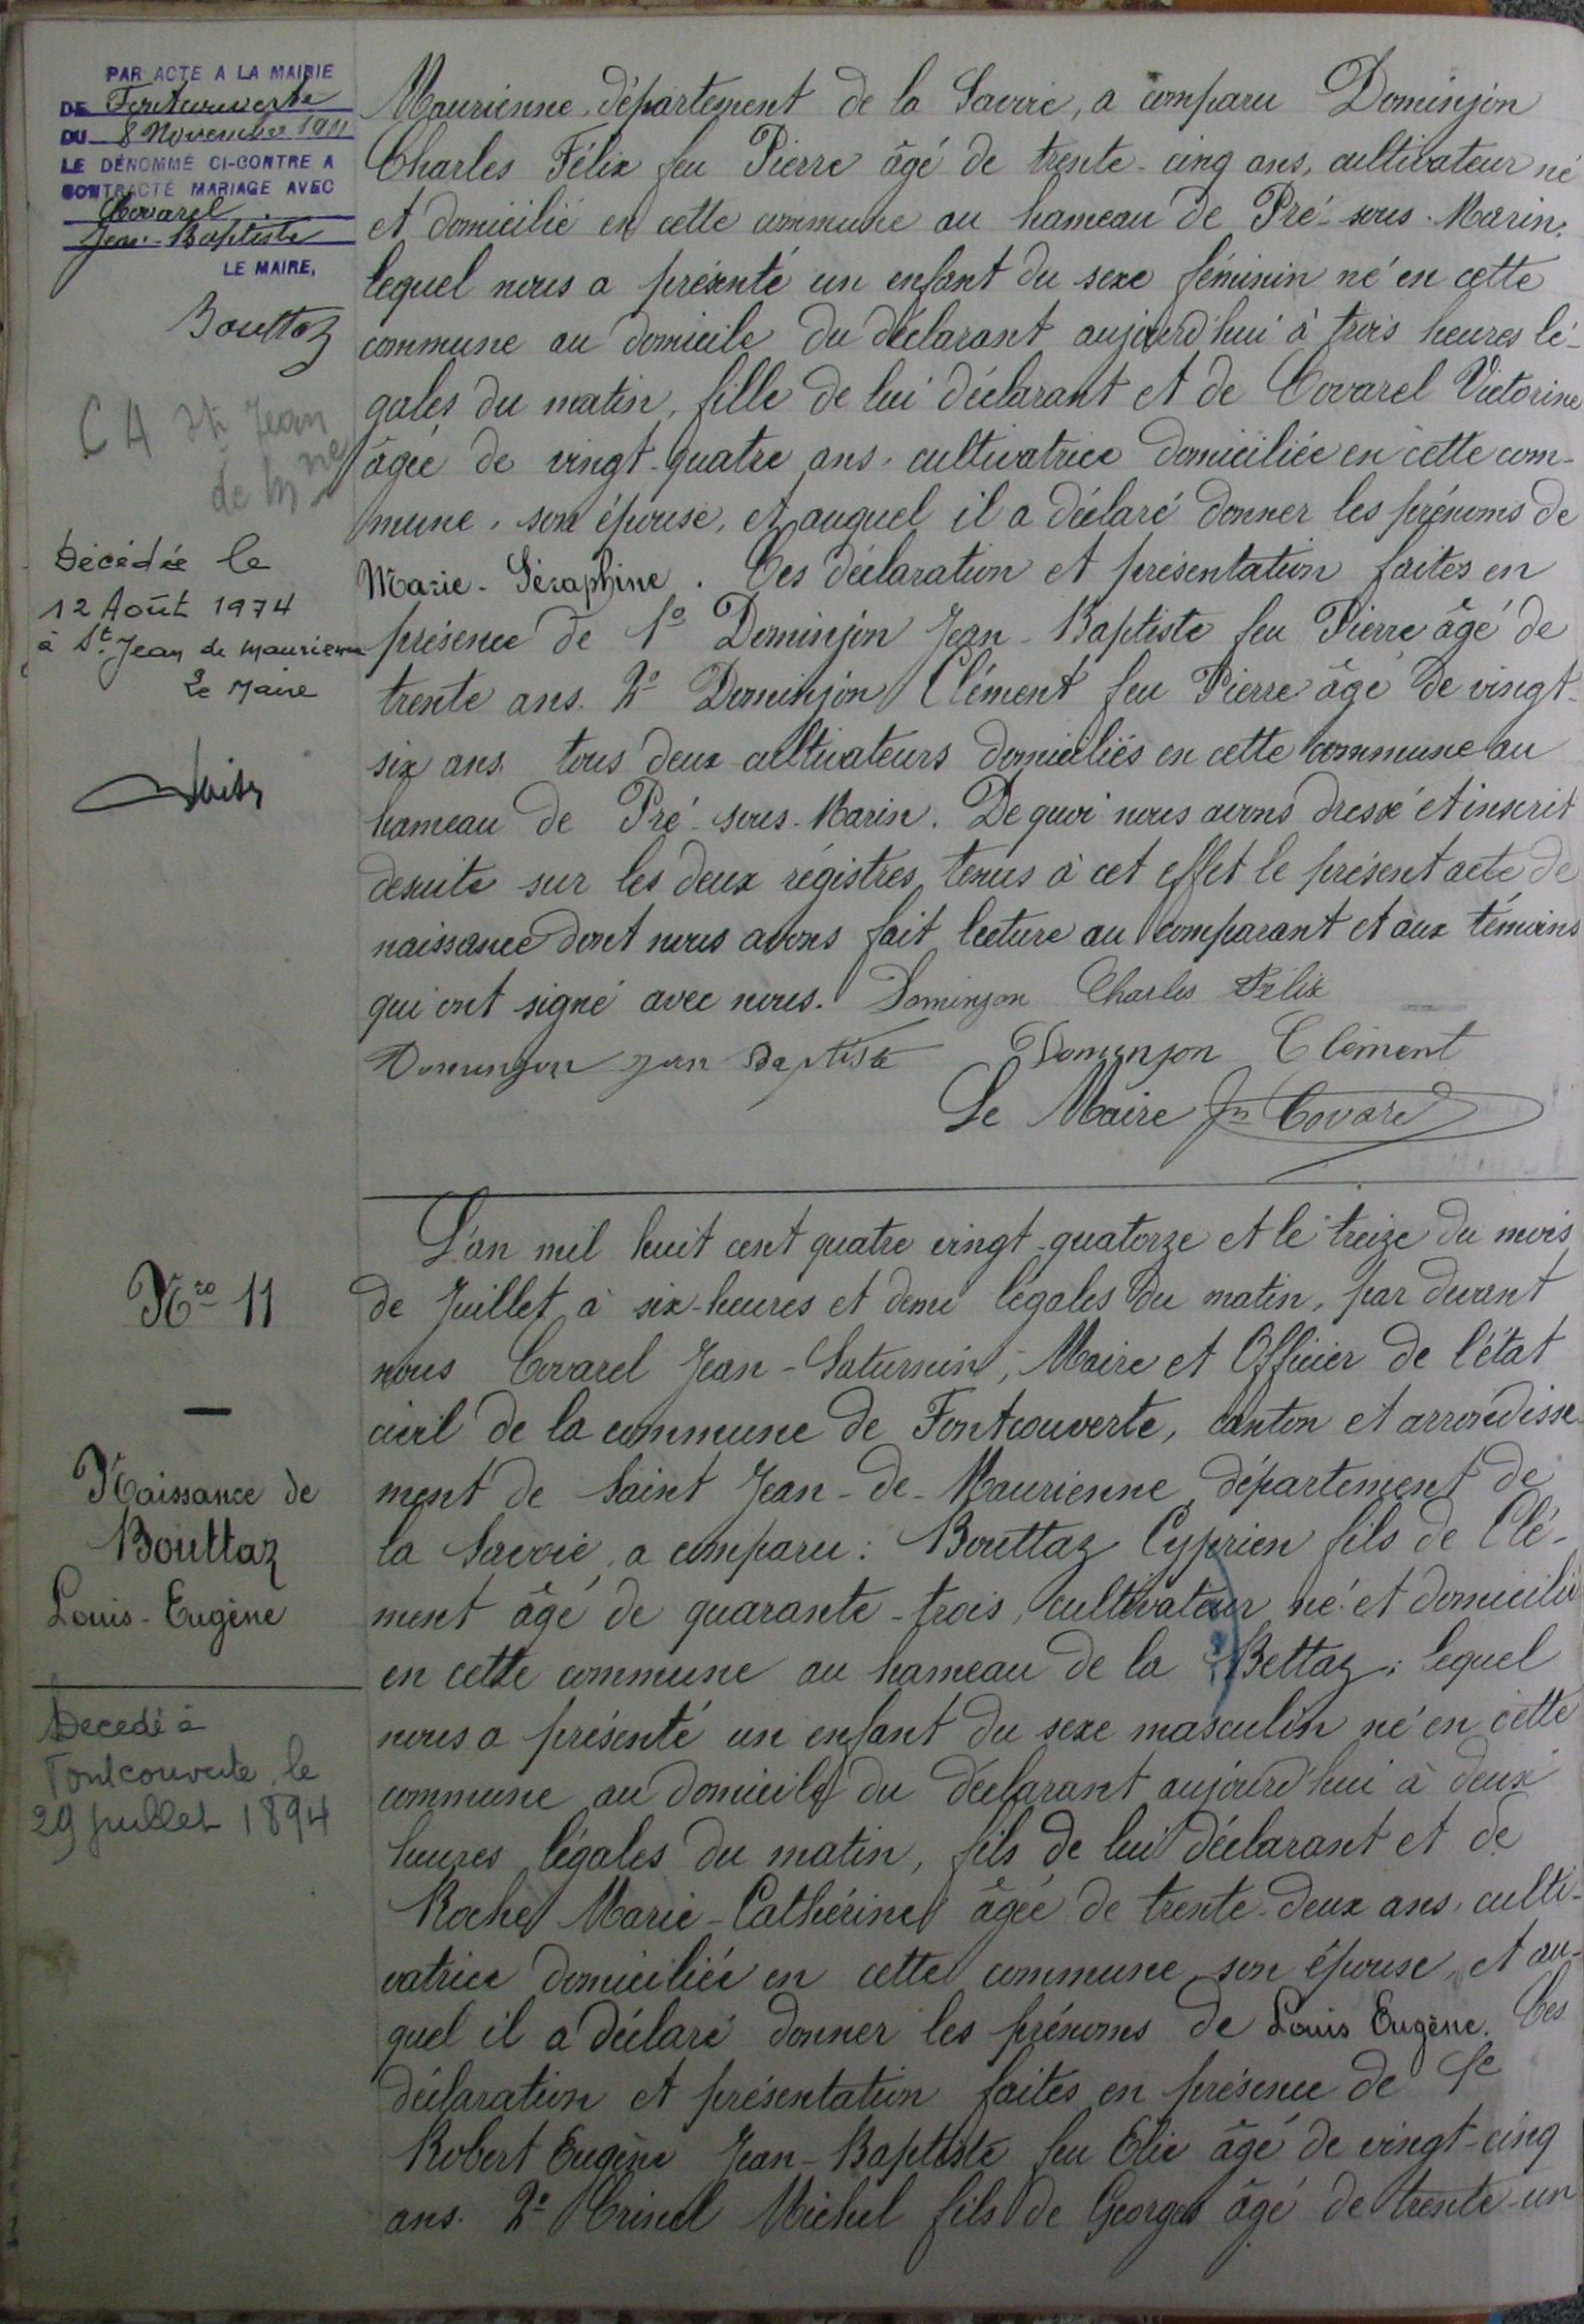 PAR ACTE A LA MAIRIE
DE Fontcouverte
DU 8 Novembre 1911
LE DÉNOMMÉ CI-CONTRE A
CONTRACTÉ MARIAGE AVEC
Covarel
Jean-Baptiste
LE MAIRE,
Bouttaz
C A St Jean
de Mne
Décédée le
12 Août 1974
à St Jean de Maurienne
Le Maire
Maurienne, département de la Savoie, a comparu Dominjon
Charles Félix feu Pierre âgé de trente-cinq ans, cultivateur né
et domicilié en cette commune au hameau de Pré-sous-Marin,
lequel nous a présenté un enfant du sexe féminin né en cette
commune au domicile du déclarant aujourd'hui à trois heures lé-
gales du matin, fille de lui déclarant et de Covarel Victorine
âgée de vingt-quatre ans, cultivatrice domiciliée en cette com-
mune, son épouse, et auquel il a déclaré donner les prénoms de
Marie-Séraphine. Ces déclaration et présentation faites en
présence de 1º Dominjon Jean-Baptiste feu Pierre âgé de
trente ans. 2º Dominjon Clément feu Pierre âgé de vingt-
six ans, tous deux cultivateurs domiciliés en cette commune au
hameau de Pré-sous-Marin. De quoi nous avons dressé et inscrit
desuite sur les deux régistres tenus à cet effet le présent acte de
naissance dont nous avons fait lecture au comparant et aux témoins
qui ont signé avec nous. Dominjon Charles Félix
Dominjon Jean Baptiste Dominjon Clément
Le Maire Jn Covarel
Nro 11
Naissance de
Bouttaz
Louis-Eugène
Decedé à
Fontcouverte, le
29 juillet 1894
L'an mil huit cent quatre vingt-quatorze et le treize du mois
de Juillet à six-heures et demi légales du matin, par devant
nous Covarel Jean-Saturnin, Maire et Officier de l'état
civil de la commune de Fontcouverte, canton et arrondisse-
ment de Saint Jean-de-Maurienne, département de
la Savoie, a comparu: Bouttaz Cyprien fils de Clé-
ment âgé de quarante-trois, cultivateur né et domicilié
en cette commune au hameau de la Bettaz; lequel
nous a présenté un enfant du sexe masculin né en cette
commune au domicile du déclarant aujourd'hui à deux
heures légales du matin, fils de lui déclarant et de
Roche Marie-Cathérine âgée de trente-deux ans, culti-
vatrice domiciliée en cette commune, son épouse, et au-
quel il a déclaré donner les prénoms de Louis Eugène. Ces
déclaration et présentation faites en présence de 1e
Robert Eugène Jean-Baptiste feu Elie âgé de vingt-cinq
ans. 2º Michel fils de Georges âgé de trente-un